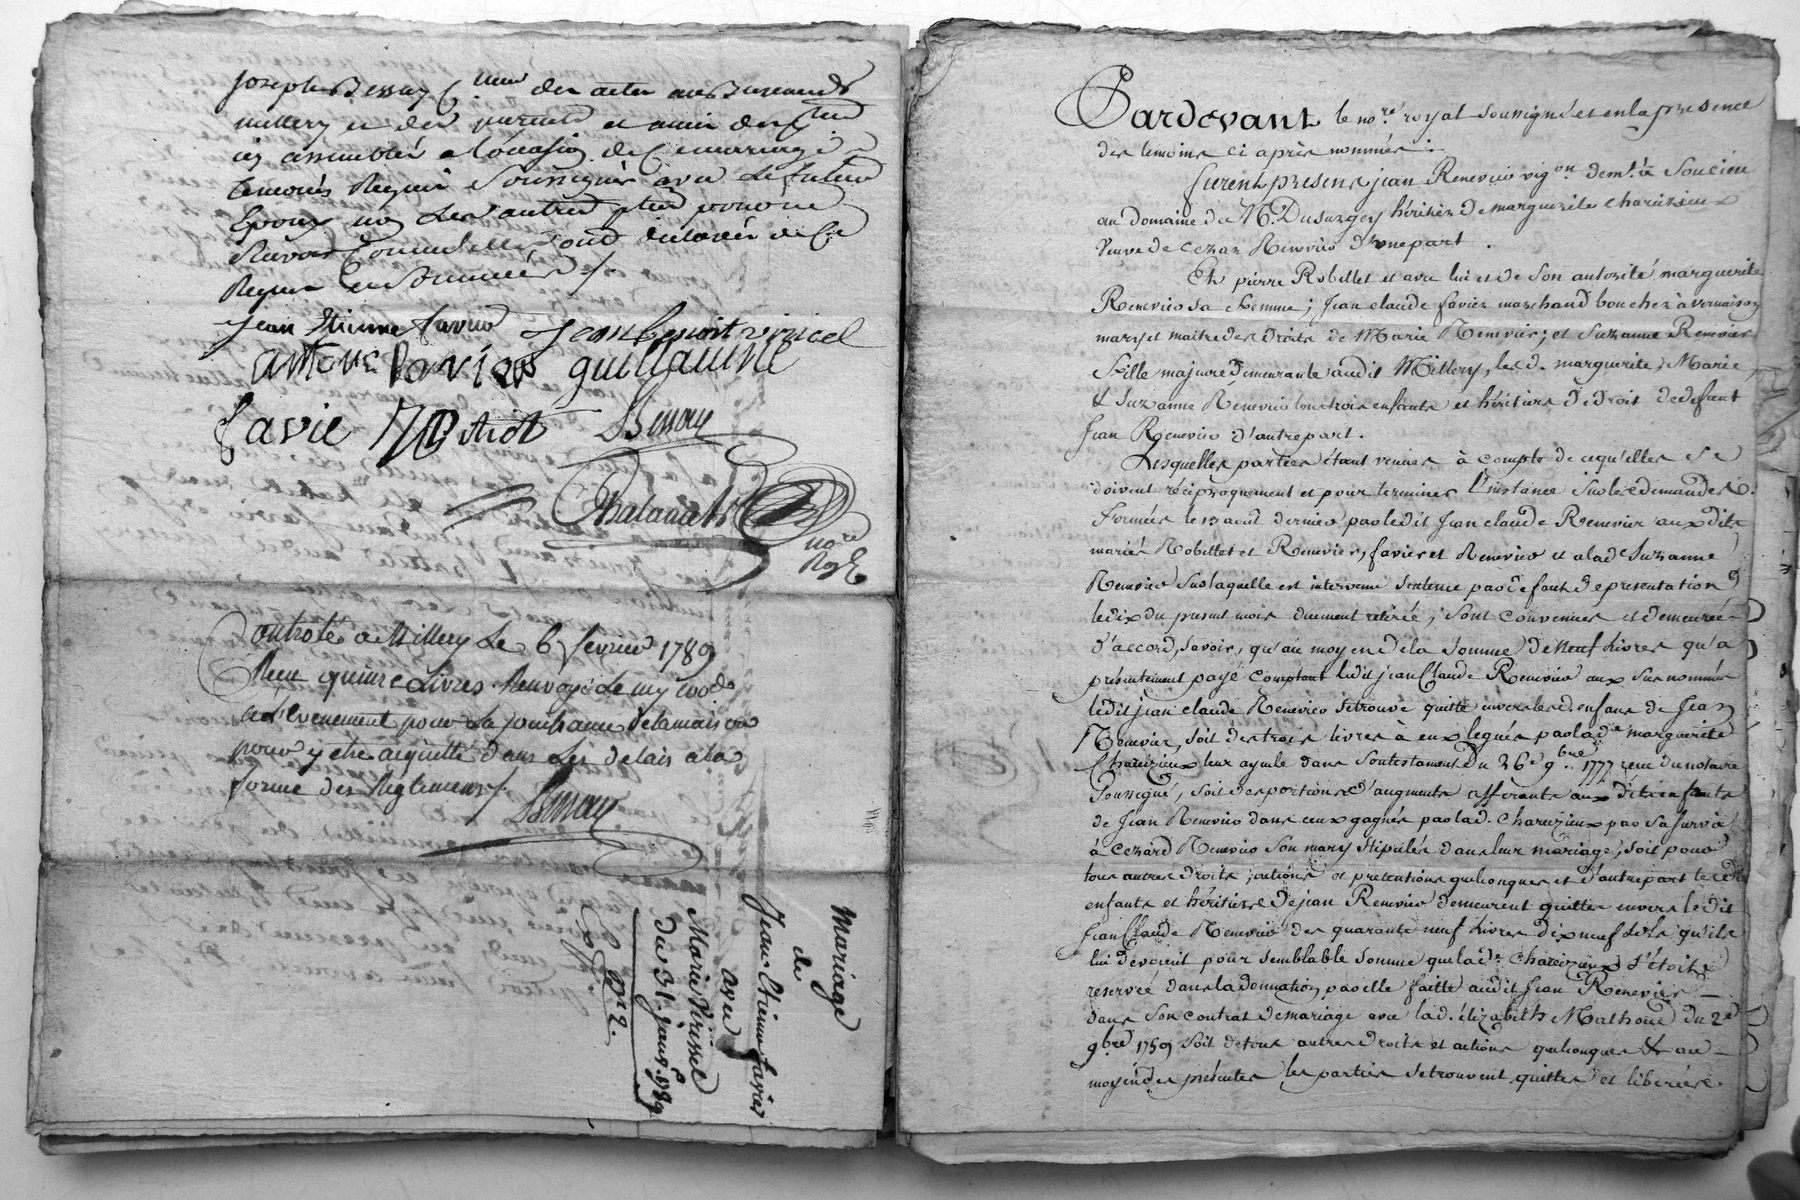 Joseph Bessay Cmm des actes au Bureau de
millery et des parents et amis des
icy assemblés a loccasion de Ce mariage
temoins Requis Soussignés avec Le futur
Epoux non Les autres pour ne
Scavoir Comme elles ont declarés de Ce
Requis et Sommées /.
Jean Etienne favier Jean benoit viricel
antoine guillaume
favie
Bessay
nore
Controlé a Millery Le 6 fevrier 1789
Recu quinze Livres. Renvoyé Le
a l'evenement pour La jouissance de la maison
pour y etre acquitté dans Les delais a la
forme des Reglemens /.
Bessay
Mariage
de
Jean Etienne favier
avec
Marie Viressel
du 31 janvr 1789
Pr 2.
Pardevant le nore royal soussigné et en la presence
des temoins ci après nommés :
furent presens jean Renevier vigon demt à Soucieu
au domaine de M. Dusurgey héritier de marguerite charézieux
Veuve de cezar Renevier d'une part .
Et pierre Robillet et avec lui et de son autorité marguerite
Renevier sa femme ; Jean claude favier marchand boucher à vernaison
mary et maitre des droits de Marie Renevier ; et Suzanne Renevier
fille majeure demeurante audit Millery, les d. marguerite, Marie,
& Suzanne Renevier tous trois enfants et héritiers de droit de defunt
Jean Renevier d'autre part.
Lesquelles parties étant venues à compte de ce qu'elles se
doivent réciproquement et pour terminer l'instance sur les demandes
formées le 13 août dernier par ledit Jean claude Renevier aux dits
mariés Robillet et Renevier, favier et Renevier et a lad. Suzanne
Renevier sur laquelle est intervenu sentence par defaut de presentation
le dix du present mois duement retirée, sont convenues et demeurées
d'accord, savoir, qu'au moyen de la somme de neuf livres qu'a
présentement payé comptant ledit jean Claude Renevier aux sus nommés
ledit jean claude Renevier se trouve quitte envers lesd. enfans de Jean
Renevier, soit des trois livres à eux legués par lade marguerite
Charézieux leur ayeule dans son testament du 26e 9bre 1777 recu du notaire
soussigné, soit des portions d'augments afferants aux dits enfants
de Jean Renevier dans ceux gagnés par lad. Charezieux par sa survie
à Cezard Renevier son mary stipulés dans leur mariage, soit pour
tous autres droits, actions et pretentions quelconques et d'autre part lesd
enfants et héritiers de jean Renevier demeurent quittes envers ledit
Jean Claude Renevier des quarante neuf livres dix neuf sols qu'ils
lui devoient pour semblable somme que lade Charézieux s'étoit
reservée dans la donnation par elle faitte audit Jean Renevier
dans son contrat de mariage avec lad. élizabeth Mathoud du 2d
9bre 1759 soit de tous autres droits et actions quelconques & au
moyen des présentes les parties se trouvent quittes et libérées